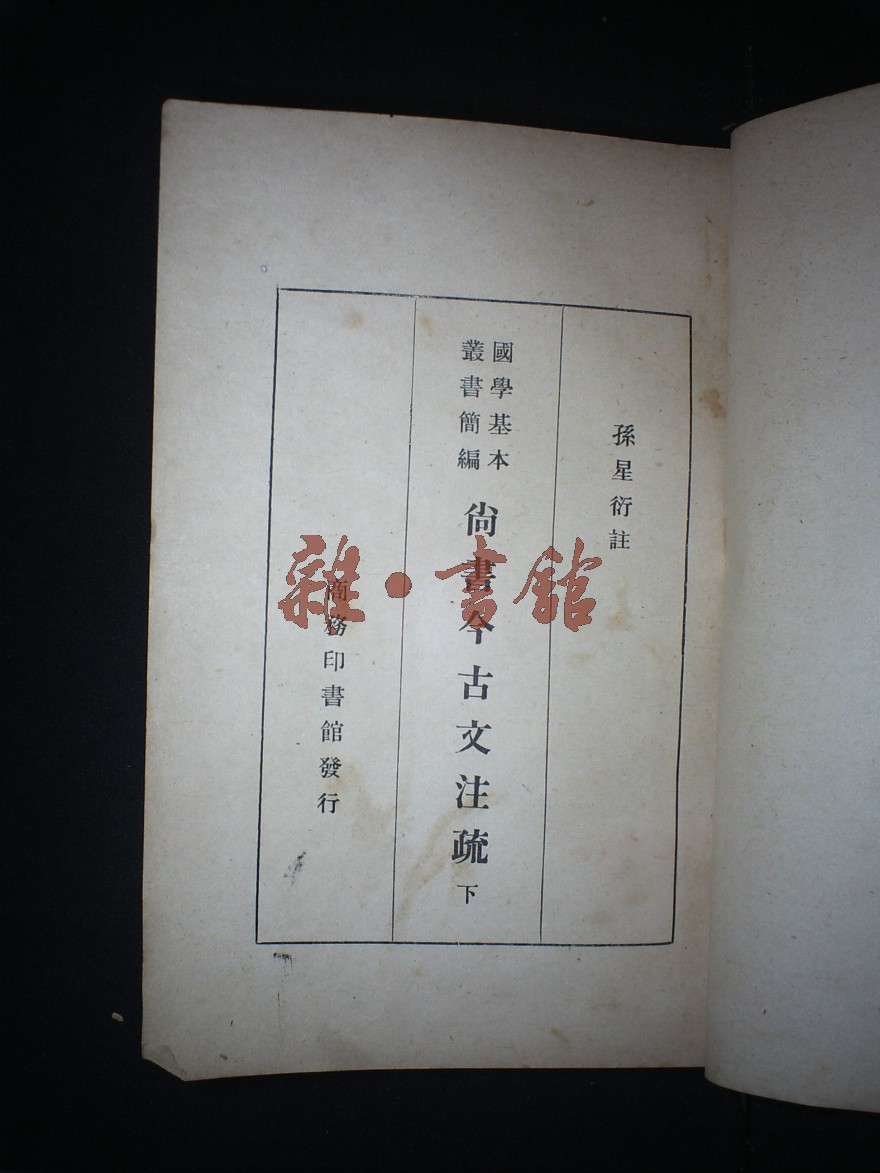 孫星衍註
國學基本
叢書簡編
尙書今古文注疏 下
商務印書館發行
雜·書館